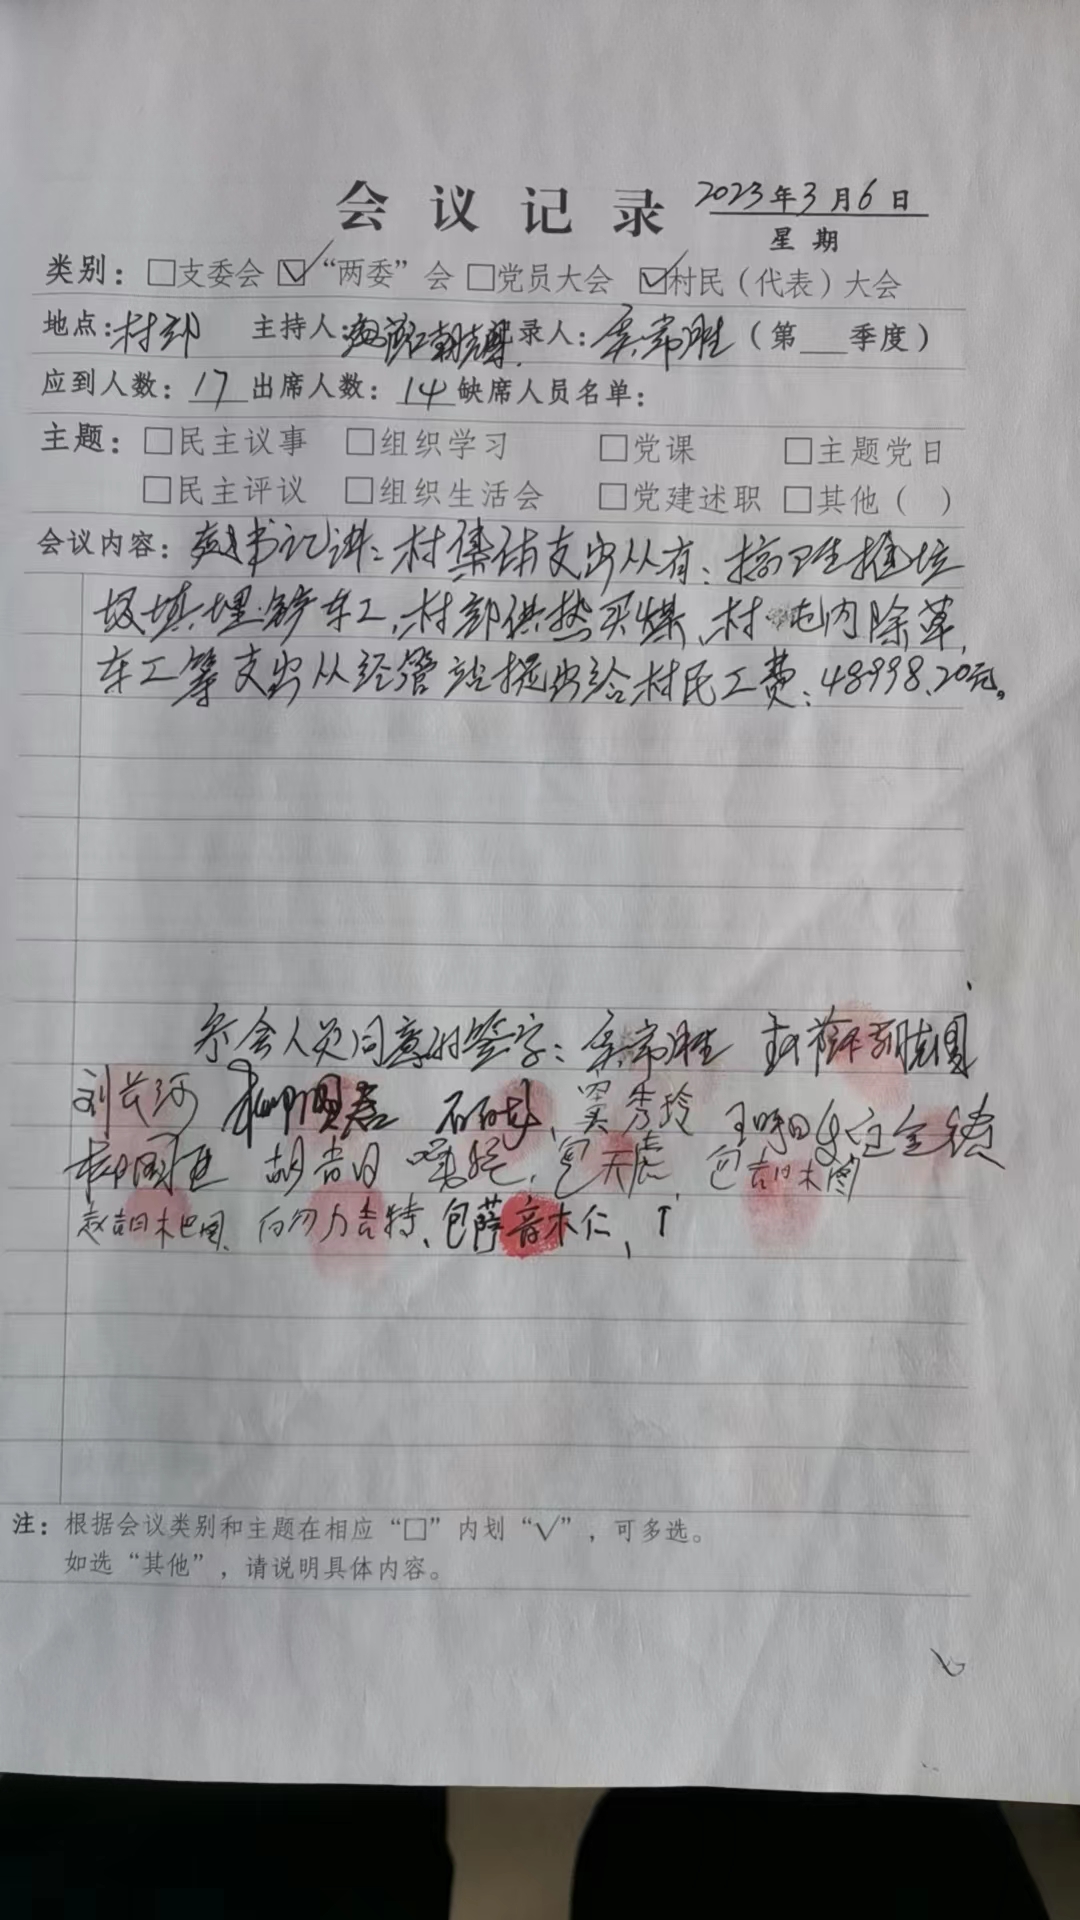 会议记录 2023年3月6日
星期
类别：□支委会 ☑“两委”会 □党员大会 ☑村民（代表）大会
地点：村部 主持人： 录人： 常胜（第___季度）
应到人数：17 出席人数：14 缺席人员名单：
主题：□民主议事 □组织学习 □党课 □主题党日
□民主评议 □组织生活会 □党建述职 □其他（ ）
会议内容：赵书记讲：村集体支出从有：搞卫生推垃
圾填埋 车工，村部供热买煤、村屯内除草，
车工等支出从经管站提出给村民工费：48998.20元。
参会人员同意的签字： 常胜
刘长河 秀玲
胡吉日 包天虎，包吉日木图
赵吉日木巴图、 白勿力吉特、包萨音木仁，↑
注：根据会议类别和主题在相应“□”内划“√”，可多选。
如选“其他”，请说明具体内容。